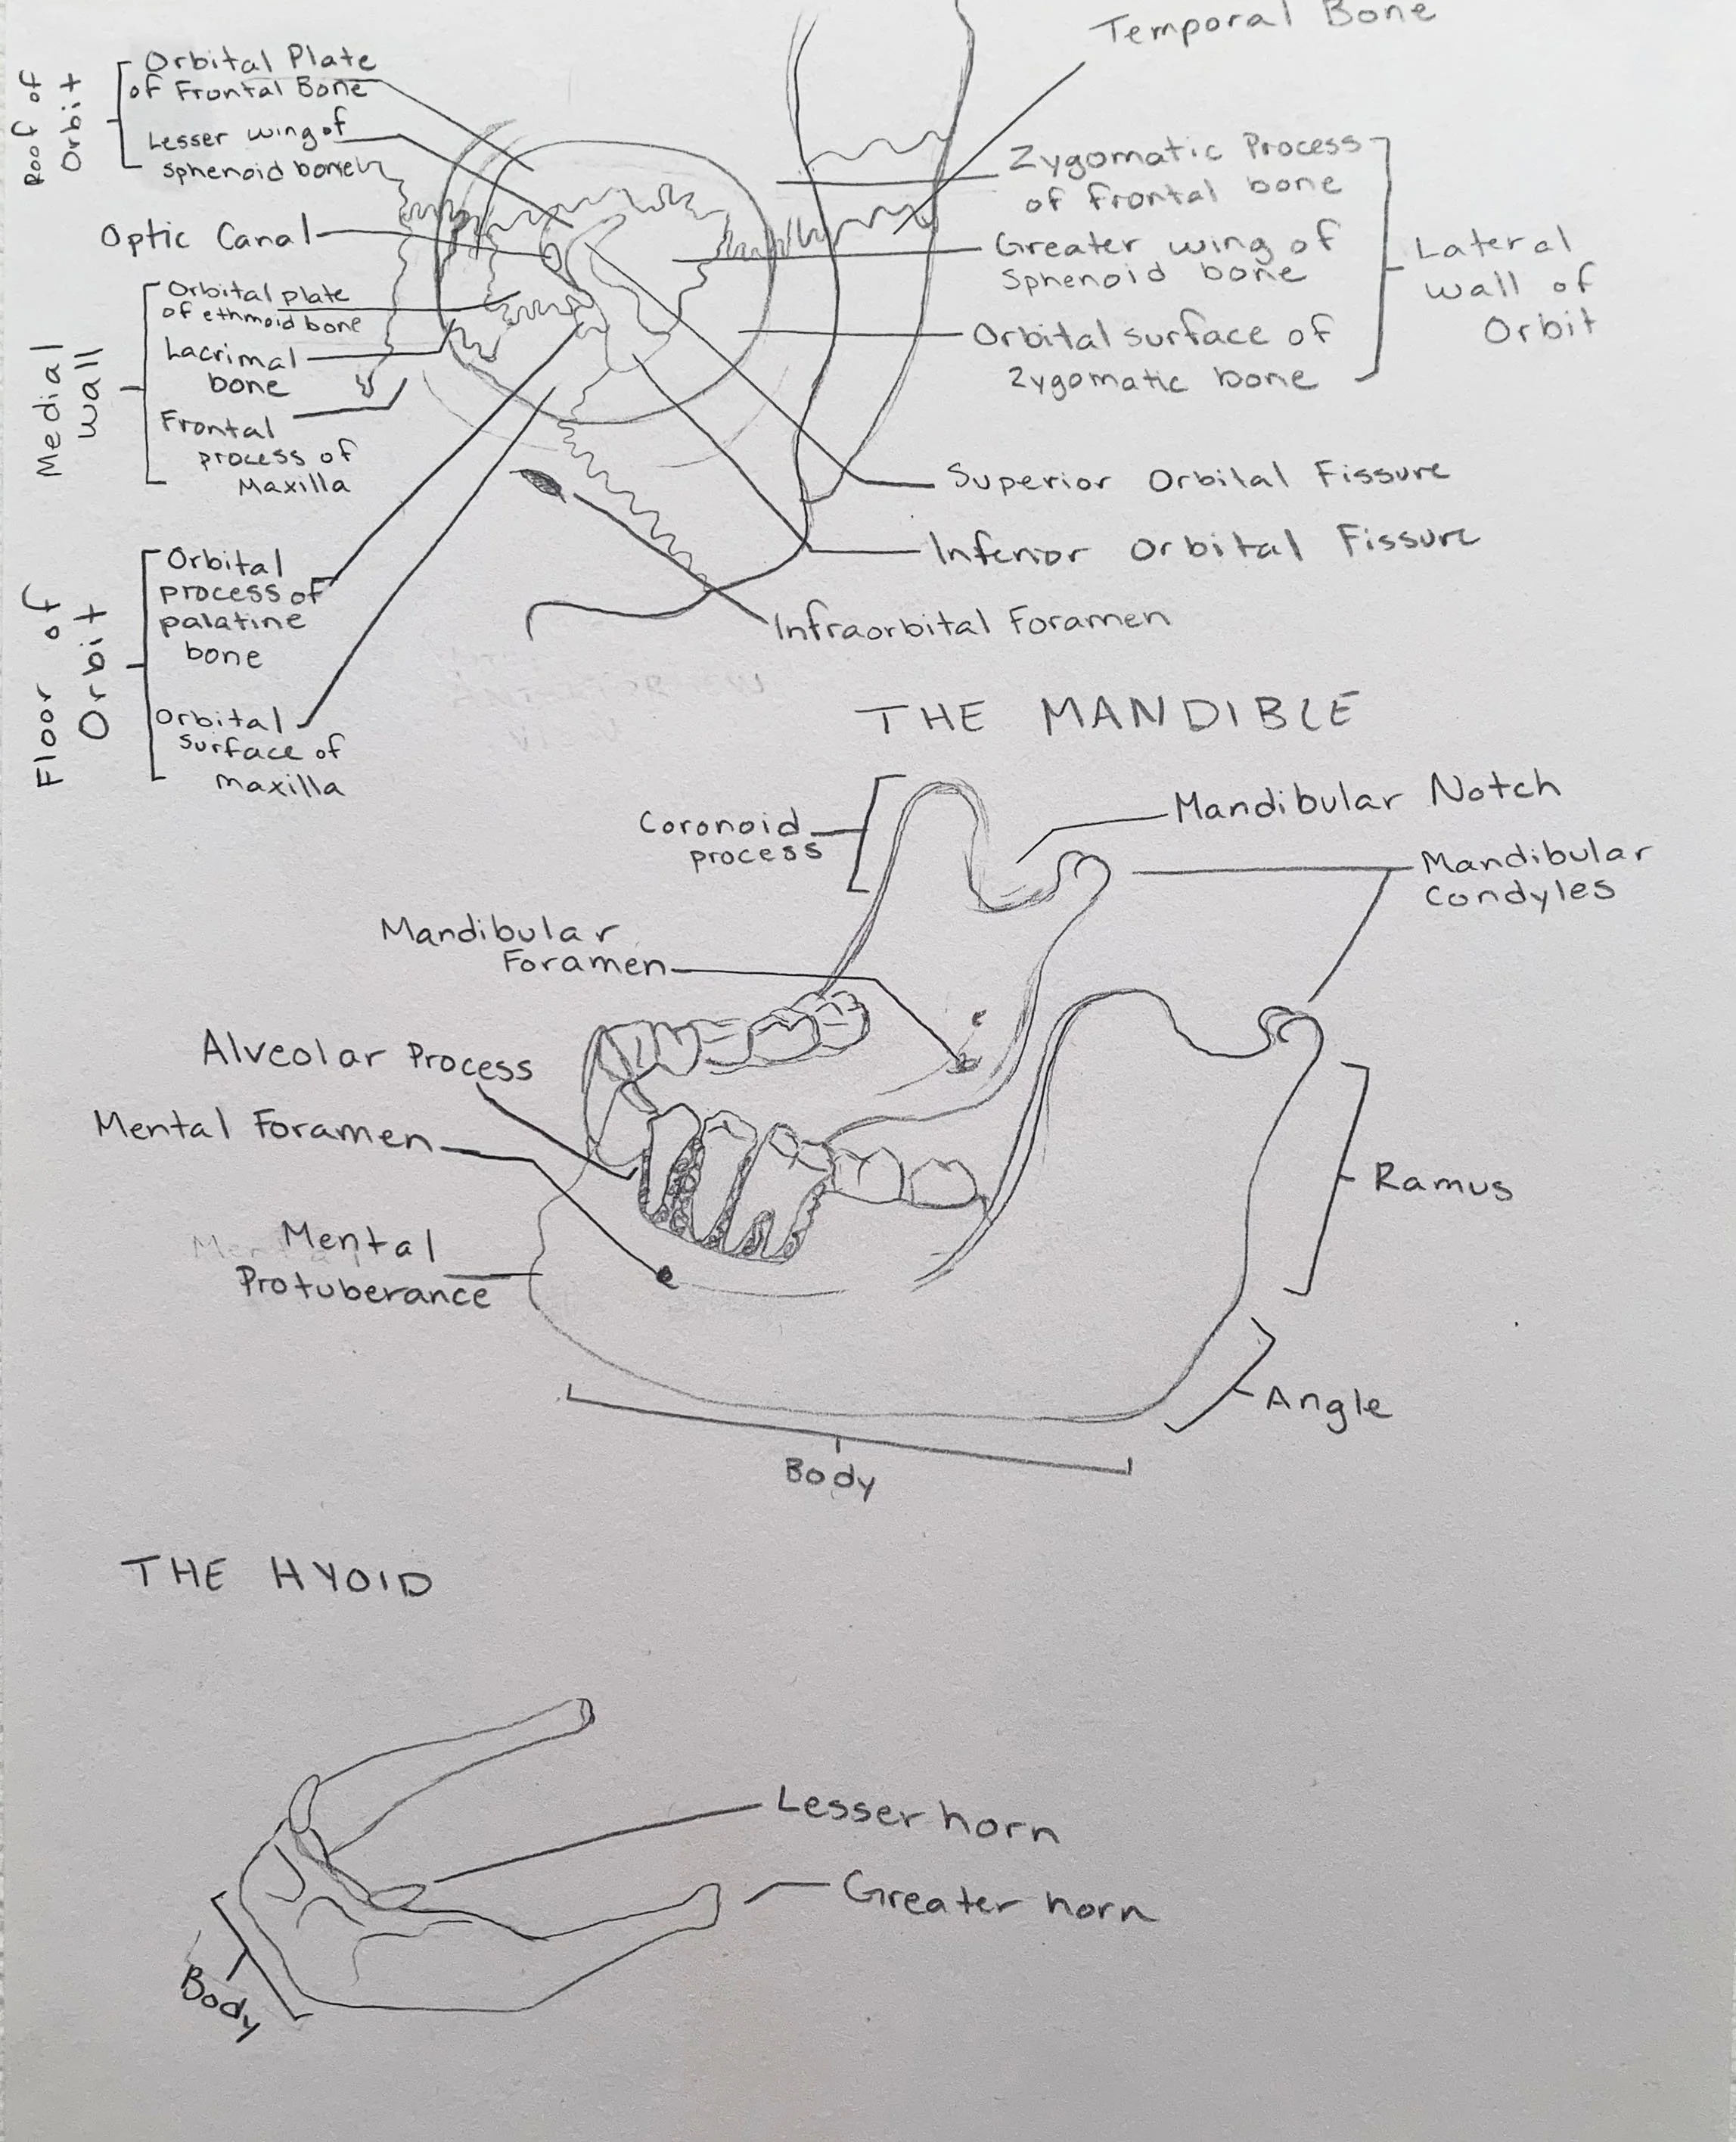 Temporal Bone
Roof of
Orbit
Orbital Plate
of Frontal Bone
Lesser wing of
Sphenoid bone
Optic Canal
Medial
Wall
Orbital plate
of ethmoid bone
Lacrimal
bone
Frontal
process of
Maxilla
Floor of
Orbit
Orbital
process of
palatine
bone
Orbital
Surface of
Maxilla
Zygomatic Process
of frontal bone
Greater wing of
Sphenoid bone
Orbital surface of
Zygomatic bone
Lateral
Wall of
Orbit
Superior Orbital Fissure
Inferior Orbital Fissure
Infraorbital Foramen
THE MANDIBLE
Coronoid
process
Mandibular Notch
Mandibular
Condyles
Mandibular
Foramen
Alveolar Process
Mental Foramen
Mental
Protuberance
Ramus
Angle
Body
THE HYOID
Lesser horn
Greater horn
Body